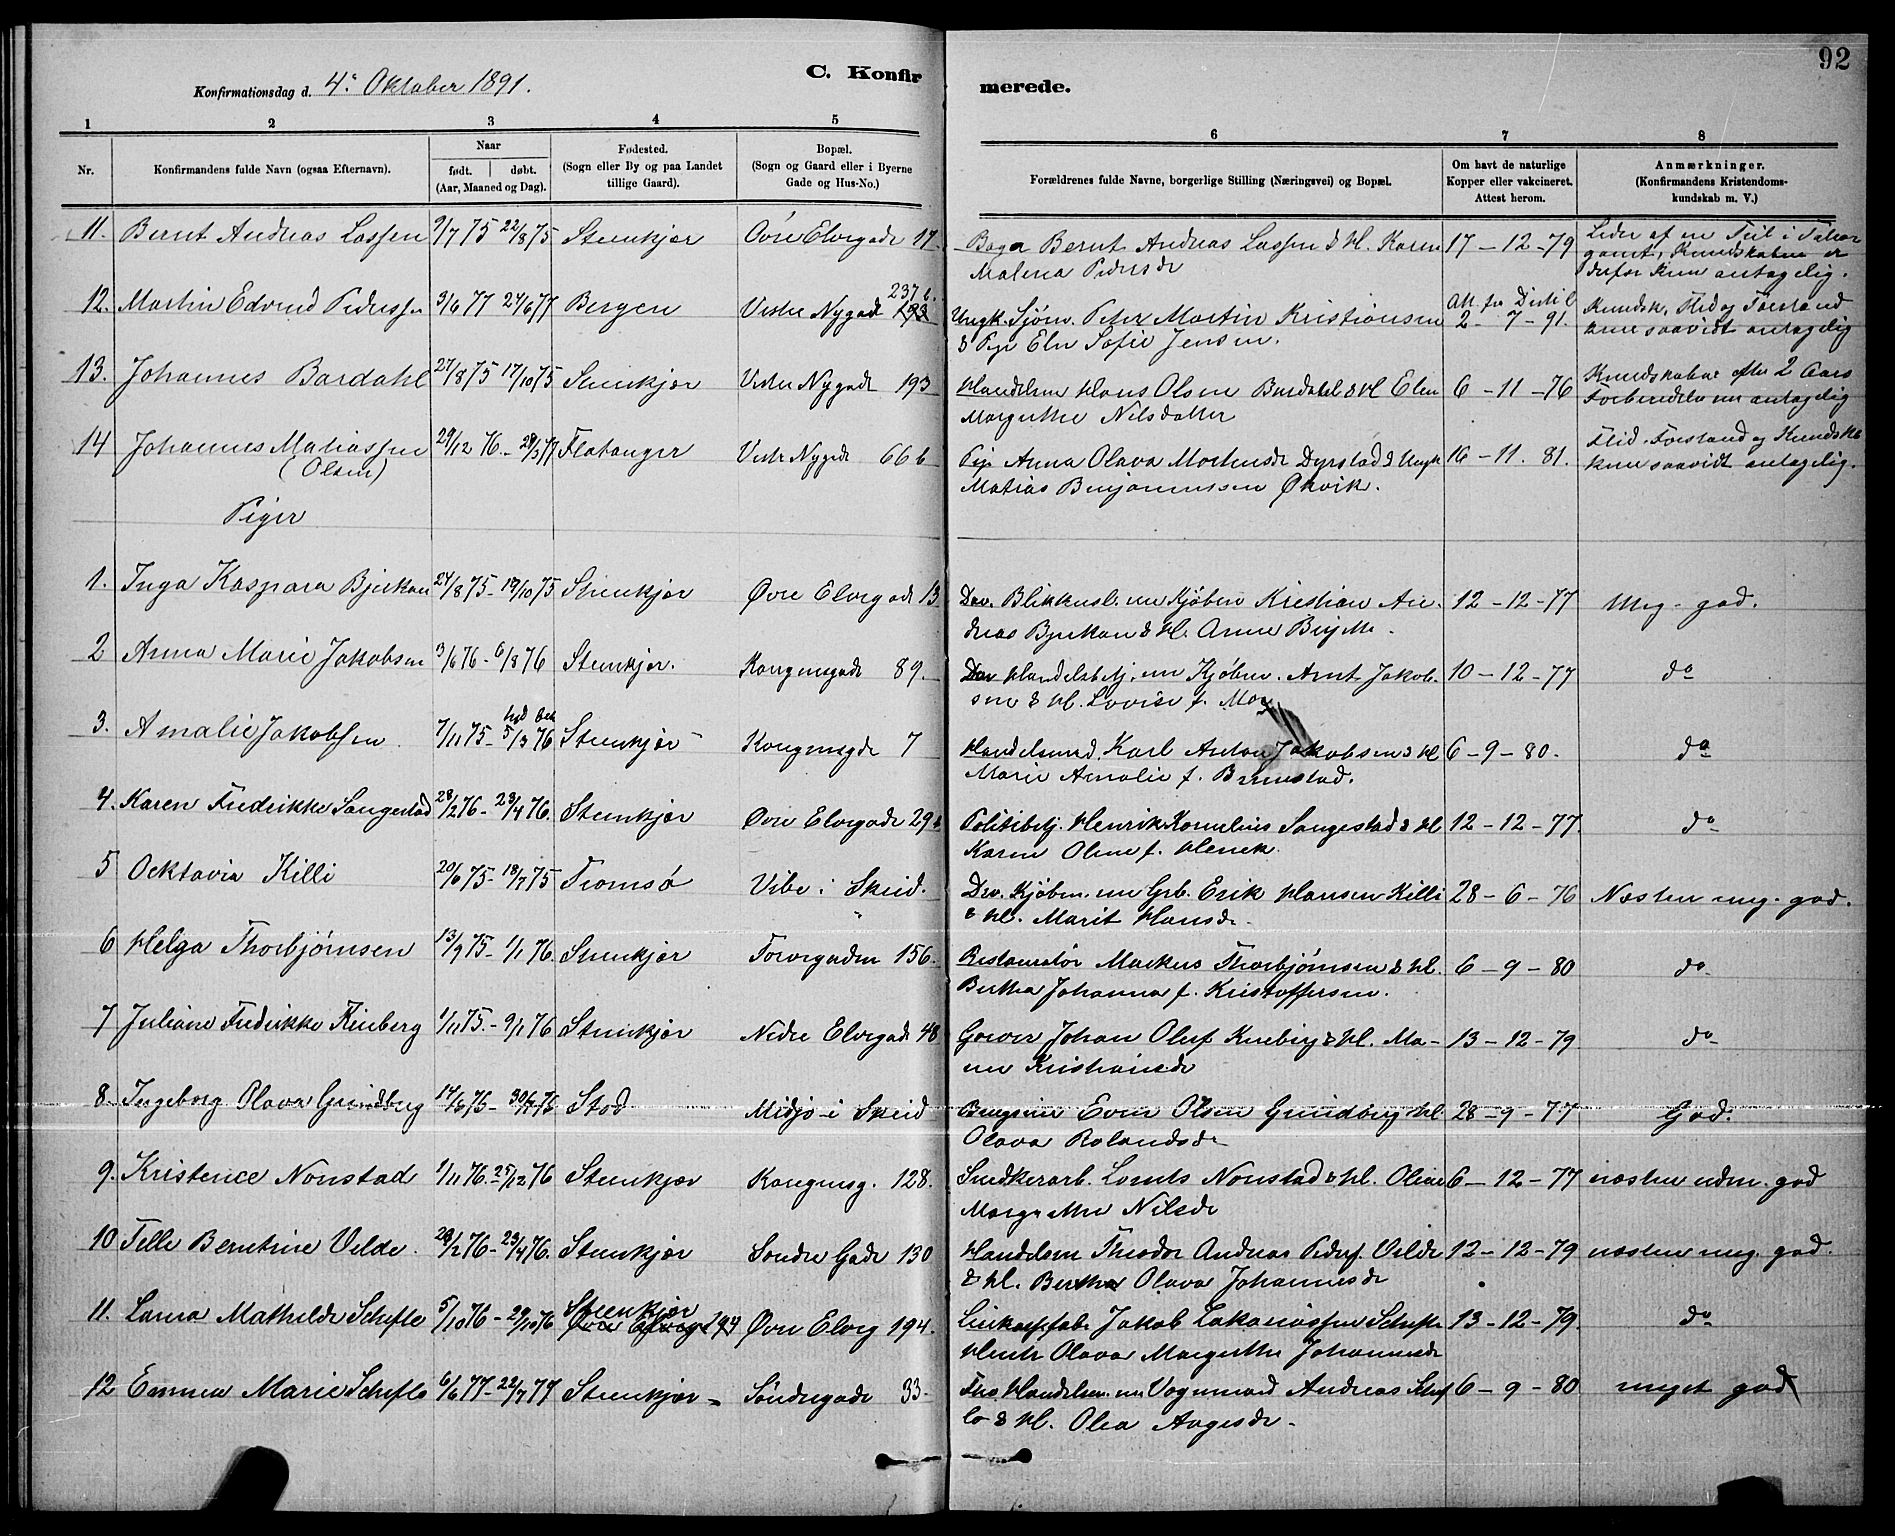 92
C. Konfirmerede.
Konfirmationsdag d. 4de Oktober 1891.
1 2 3 4 5 6 7 8
Nr. Konfirmandens fulde Navn (ogsaa Efternavn). Naar født. døbt. (Aar, Maaned og Dag). Fødested. (Sogn eller By og paa Landet tillige Gaard). Bopæl. (Sogn og Gaard eller i Byerne Gade og Hus-No.) Forældrenes fulde Navne, borgerlige Stilling (Næringsvei) og Bopæl. Om havt de naturlige Kopper eller vakcineret. Attest herom. Anmærkninger. (Konfirmandens Kristendomskundskab m. V.)
11. Bernt Andreas Lassen 9/7 75 22/8 75 Stenkjær Øvre Elvegade 17. Bager Bernt Andreas Lassen & H. Karen 17-12-79
Malena Pedersdr
kun antagelig.
12. Martin Edvard Pedersen 3/6 77 24/6 77 Bergen Vestre Nygade 237 b. Ungk. Sjøm. Peter Martin Kristiansen 2-7-91. Kundsk, Flid og Forstand
& Pige Elen Sofie Jensen. kun saavidt antagelig
13. Johannes Bardahl 27/8 75 17/10 75 Stenkjær Vestre Nygade 193 Handelsm Hans Olsen Bardahl & H Elen 6-11-76 Kundskaber efter 2 Aars
Margrethe Nilsdatter Forberedelse antagelig
14 Johannes Matiassen 29/12 76. Flatanger Vestr Nygade 66 b Pige Anna Olava Mortensdr Dyrstad & Ungk 16-11. 81. Flid. Forstand og Kundsk
(Olsen) Matias Benjaminsen Økvik. kun saavidt antagelig.
Piger
1. Inga Kaspara Bjerkan 24/8 75- 19/10 75 Stenkjær Øvre Elvegade 13 Dav. Blikkensl. nu Kjøbm Kristian An- 12-12-77 Meg. god.
dreas Bjerkan & H. Anne Birgitte.
2 Anna Marie Jakobsen 3/6 76- 6/8 76 Stenkjær. Kongensgade 89. Dav Handelsbetj. nu Kjøbm. Arnt Jakob- 10-12-77 do
sen & H. Lovise f. Moe
3. Amalie Jakobsen 7/11 75- 5/3 76 Stenkjær Kongensgde 7 Handelsmand Karl Anton Jakobsen & H 6-9-80. do
Marie Amalie f. Brunstad.
4. Karen Fredrikke Sangestad 28/2 76- 23/4 76. Stenkjær Øvre Elvegade 29 Politibetj. Henrik Kornelius Sangestad & H 12-12-77 do
Karen Oline f.
5 Ocktavia Killi 20/6 75- 18/7 75 Tromsø Vibe i Skeid. Dav. Kjøbm. nu Grb. Erik Hansen Killi 28-6-76 Næsten meg. god.
& H. Marit Hansdr
6 Helga Thorbjørnsen 13/9 75- 1/1 76. Stenkjær Torvegaden 156. Restauratør Markus Thorbjørnsen & H. 6-9-80 do
Bertha Johanna f. Kristoffersen.
7 Juliane Fredrikke Kineberg 1/11 75.- 9/1 76 Stenkjær Nedre Elvegade 48 Garver Johan Oluf Kineberg & H. Ma- 13-12-79 do
ren Kristiansdr
8. Ingeborg Olava Grindberg 14/6 76- 30/7 76 Stod Midjo i Skeid Even Olsen Grindberg H. 28-9-77 God.
Olava Rolandsdr
9. Kristence Nonstad 1/11 76.- 25/12 76 Stenkjær Kongensg. 128. Snedkerarb. Lornts Nonstad & H. Oline 6-12-77 næsten udm. god
Margrethe Nilsdr
10 Telle Berntine Velde. 28/2 76- 23/4 76. Stenkjær Søndre Gade 130 Handelsm Theodor Andreas Peders. Velde 12-12-79 næsten meg. god.
& H. Bertha Olava Johannesdr
11. Laura Mathilde Schefte 5/10 76- 29/10 76 Stenkjær Øvre Elveg 194 Øvre Elveg 194. Jakob Zakariassen Schefte 13-12-79. do
Olava Margrethe Johannesdr
12 Emma Marie Schefte 6/6 77- 22/7 77 Stenkjær Søndregade 33. Handelsm. nu Vognmand Andreas Schef 6-9-80 meget god
lo & H. Olea Aagesdr.